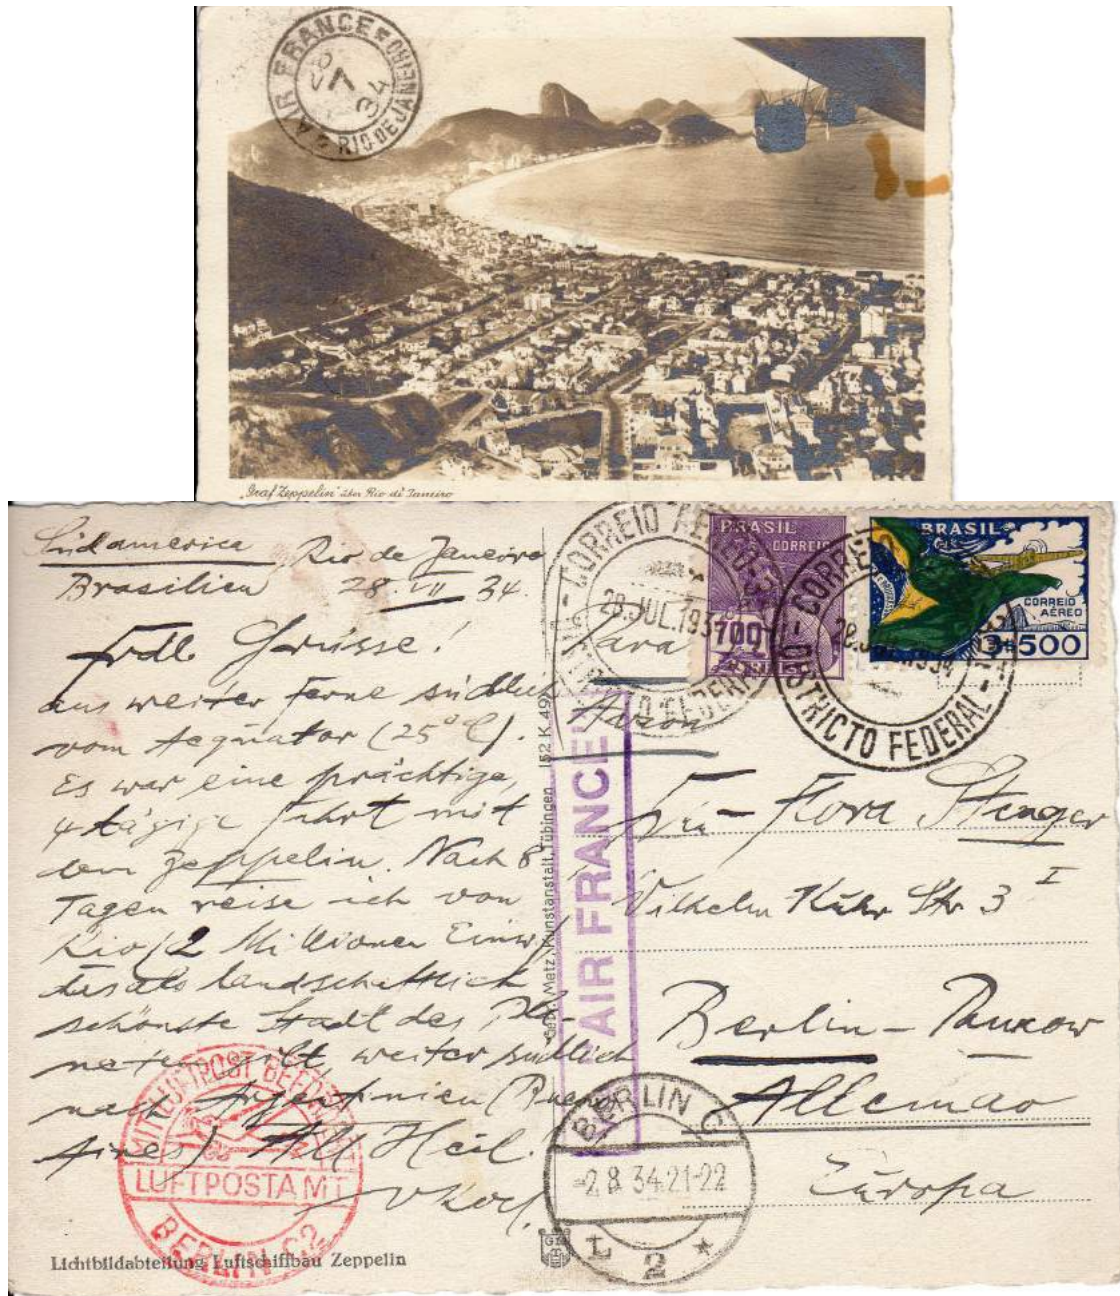 AIR FRANCE
28
7
34
RIO DE JANEIRO
„Graf Zeppelin" über Rio di Janeiro
Südamerica Rio de Janeiro
Brasilien 28. VII 34.
Frdl. Grüsse!
aus weiter Ferne südlich
vom Aequator (25° C).
Es war eine prächtige,
4 tägige Fahrt mit
dem Zeppelin. Nach 8
Tagen reise ich von
Rio (2 Millionen Einw.)
das als landschaftlich
schönste Stadt des Pla-
neten gilt, weiter südlich
nach Argentinien (Buenos
Aires) All Heil.
MIT LUFTPOST BEFÖRDERT
LUFTPOSTAMT
BERLIN C2
Lichtbildabteilung Luftschiffbau Zeppelin
Gebr. Metz, Kunstanstalt, Tübingen 152 K.49
CORREIO AEREO
28.JUL.1934
DISTRICTO FEDERAL
BRASIL
CORREIO
700
BRASIL
CORREIO
AÉREO
3$500
CORREIO
28.JUL.1934
DISTRICTO FEDERAL
Para
Avion
AIR FRANCE
Flora Stenger
Vilhelm Kuhr Str 3 I
Berlin - Pankow
Allemao
Európa
BERLIN C
-2.8.34.21-22
L 2 *